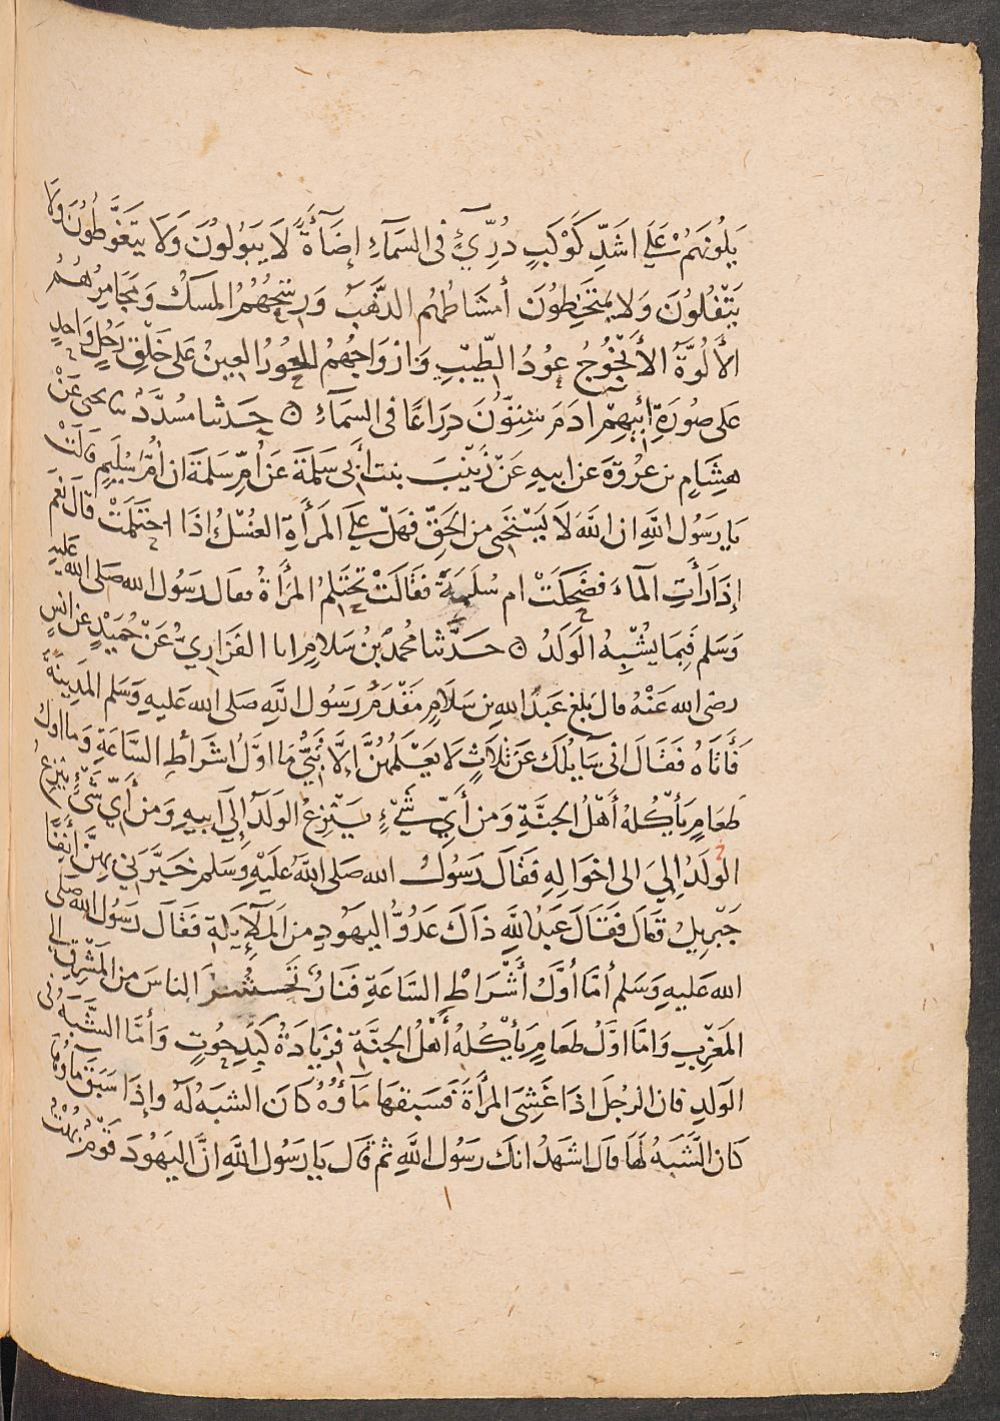 يَلُونَهُمْ عَلَى اشَدِّ كَوْكَبٍ دُرِّيٍّ فى السَمَآءِ إِضَآءَةً لَا يَبُولُونَ وَلَا يَتَغَوَّطُونَ وَلَا
يَتْفُلُونَ وَلا يَمْتَخِطُونَ أمشَاطُهُم الذَّهَبُ وَرشحُهُمُ المسكُ وَمَجَامِرُهُمُ
الأَلُوَّةُ الأَنْجُوجُ عُودُ الطِّيبِ وَازوَاجُهُمُ الحُورُ العِينُ عَلى خَلْقِ رَجُلٍ وَاحِدٍ
عَلى صُورَةِ أَبِيهِمْ ادَمَ سِتُّونَ ذِرَاعًا فى السَمَآءِ ۞ حَدثنا مسُدَّدٌ ثنا يحيى عَنْ
هِشَامٍ بن عُروَةَ عن ابيهِ عَنْ زَيْنَبَ بنت أَبى سَلَمَةَ عَن أُمِّ سَلمَةَ ان أُمَّ سُلَيمٍ قَالَتْ
يَا رَسُول اللَّهِ ان اللَّهَ لَا يَسْتَحْيى من الحَقِّ فَهَلْ عَلَى المَرأَةِ الغُسْلُ إذَا احْتَلَمَتْ قَالَ نَعَم
إِذَا رَأَتِ الْمَاءَ فَضَحِكَتْ ام سُلَمَةَ فقَالَتْ تَحْتَلِمُ المَرْأَةُ فقال رَسُول الله صَلى الله عَليهِ
وَسَلم فَبِمَا يُشْبِهُ الوَلَدُ ۞ حَدَّثنا مُحمدُ بنُ سَلامٍ انا الفَزَارِىُّ عَنْ حُمَيْدٍ عَن انسٍ
رضى الله عَنْهُ قال بَلَغ عَبدَ اللهِ بن سَلَامٍ مَقْدَمُ رَسُول اللَّهِ صَلى الله عَليهِ وَسَلم المَدِينَةَ
فَأَتَاهُ فَقَالَ انى سَآيلُكَ عَنْ ثَلَاثٍ لَا يَعْلَمُهُنَّ إلَّا نَبِىٌّ مَا اوَّلُ اشرَاطِ السَّاعَةِ وَمَا اولُ
طَعَامٍ يَأْكُلُهُ أَهْلُ الجَنَّةِ وَمن أَىِّ شَىْءٍ يَنْزِعُ الوَلَدُ إِلَى ابيهِ وَمن أَىِّ شَىْءٍ يَنْزِعُ
الوَلَدُ إِلىَ الى اخوَالِهِ فقَالَ رَسُولُ الله صَلى اللَّهُ عَلَيْهِ وَسَلم خَبَّرَنِى بِهِنَّ أَنِفًا
جَبْرِيلُ قَالَ فَقَالَ عَبْدُ اللَّهِ ذاَكَ عَدُوُّ اليَهُودِ من المَلآئِكةِ فَقَالَ رَسُول الله صَلى
الله عَليهِ وَسَلم أمَّا أَوَّلُ أَشْرَاطِ السَّاعَةِ فنَارٌ تَحشُرُ الناسَ من المَشْرِقِ الى
المَغْرِبِ وَامَّا اوَّلُ طعَامٍ يَأْكُلُهُ أَهْلُ الجَنَّةِ فَزِيَادَةُ كَبِدِ حُوتٍ وَأَمَّا الشَّبَهُ فى
الوَلدِ فان الرجُلَ اذَا غَشِىَ المرْأَةَ فَسَبقهَا مَآؤُهُ كَانَ الشبَهُ لَهُ وإِذَا سَبَقَ مَآؤُهَا
كَان الشَّبَهُ لَهَا قَال اشهَدُ انكَ رَسُول اللَّهِ ثم قَالَ يَا رَسُول اللَّهِ انَّ اليَهُودَ قَوْمٌ بُهُتٌ